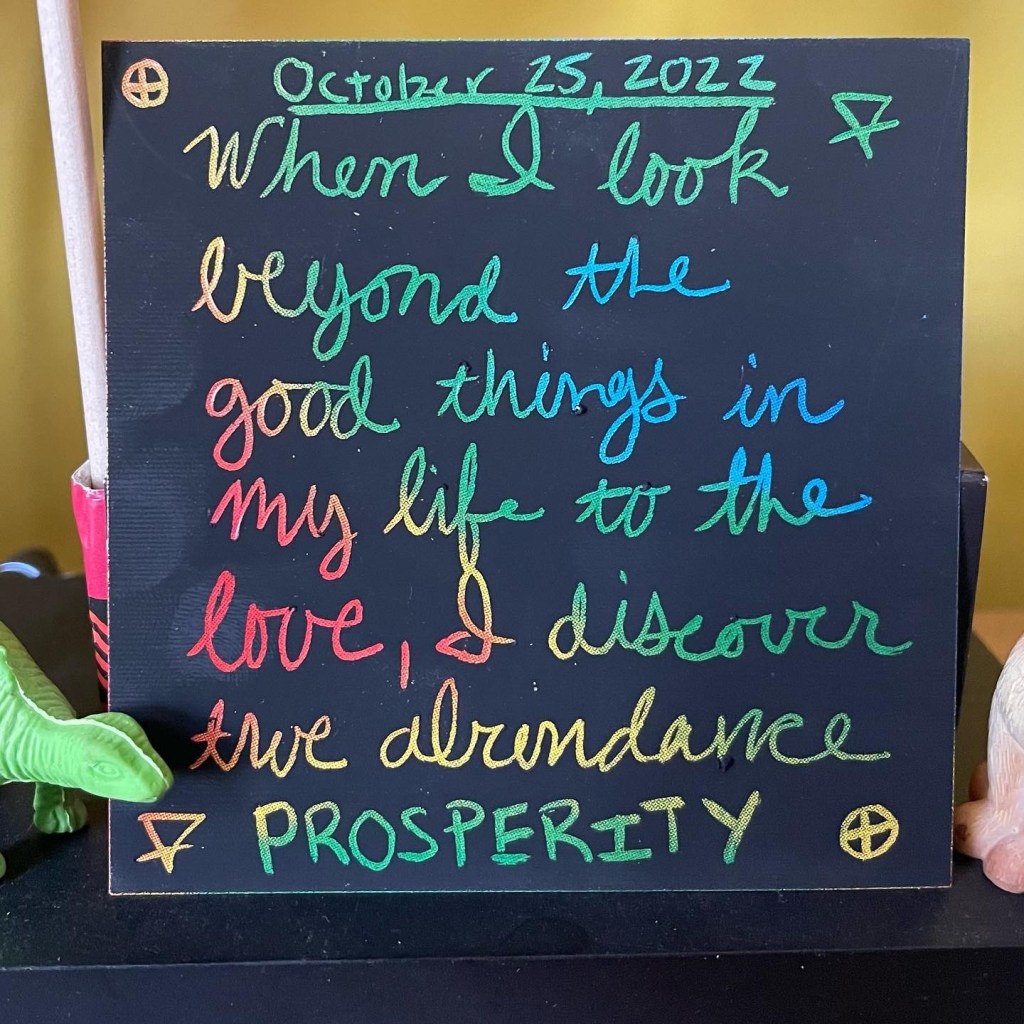 October 25, 2022
When I look
beyond the
good things in
my life to the
love, I discover
true abundance
PROSPERITY